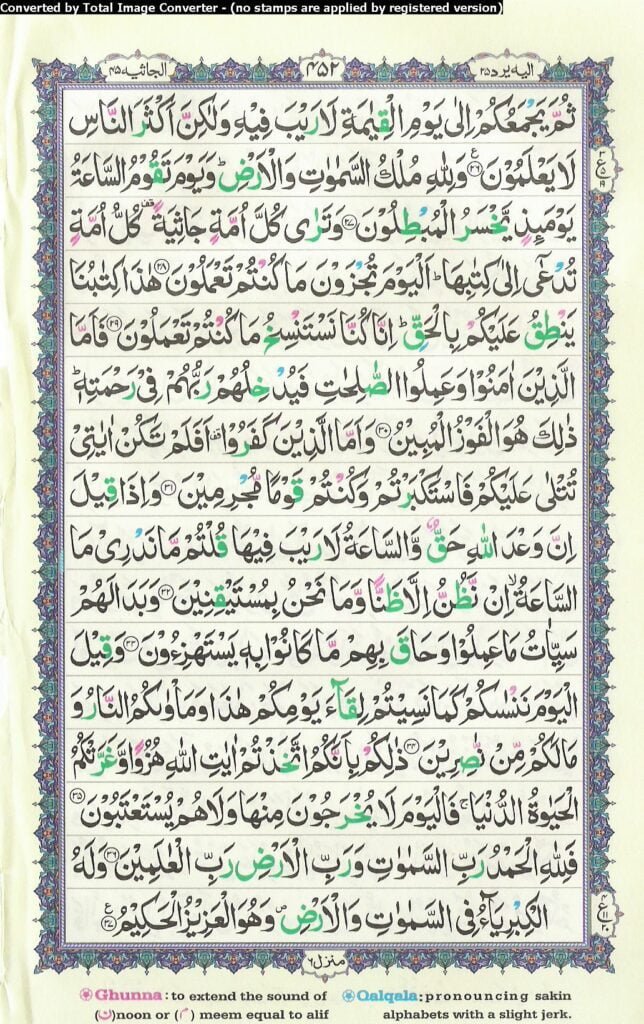 Converted by Total Image Converter - (no stamps are applied by registered version)
الجاثية ۴۵ ۴۵۲ اليه يرد ۲۵
ثُمَّ يَجۡمَعُكُمۡ اِلٰى يَوۡمِ الۡقِيٰمَةِ لَا رَيۡبَ فِيۡهِ وَلٰكِنَّ اَكۡثَرَ النَّاسِ
لَا يَعۡلَمُوۡنَ ۲۶ وَلِلّٰهِ مُلۡكُ السَّمٰوٰتِ وَالۡاَرۡضِ ؕ وَيَوۡمَ تَقُوۡمُ السَّاعَةُ
يَوۡمَٮِٕذٍ يَّخۡسَرُ الۡمُبۡطِلُوۡنَ ۲۷ وَتَرٰى كُلَّ اُمَّةٍ جَاثِيَةً ۗ كُلُّ اُمَّةٍ
تُدۡعٰٓى اِلٰى كِتٰبِهَا ؕ اَلۡيَوۡمَ تُجۡزَوۡنَ مَا كُنۡتُمۡ تَعۡمَلُوۡنَ ۲۸ هٰذَا كِتٰبُنَا
يَنۡطِقُ عَلَيۡكُمۡ بِالۡحَقِّ ؕ اِنَّا كُنَّا نَسۡتَنۡسِخُ مَا كُنۡتُمۡ تَعۡمَلُوۡنَ ۲۹ فَاَمَّا
الَّذِيۡنَ اٰمَنُوۡا وَعَمِلُوا الصّٰلِحٰتِ فَيُدۡخِلُهُمۡ رَبُّهُمۡ فِىۡ رَحۡمَتِهٖ ؕ
ذٰلِكَ هُوَ الۡفَوۡزُ الۡمُبِيۡنُ ۳۰ وَاَمَّا الَّذِيۡنَ كَفَرُوۡا ۗ اَفَلَمۡ تَكُنۡ اٰيٰتِىۡ
تُتۡلٰى عَلَيۡكُمۡ فَاسۡتَكۡبَرۡتُمۡ وَكُنۡتُمۡ قَوۡمًا مُّجۡرِمِيۡنَ ۳۱ وَاِذَا قِيۡلَ
اِنَّ وَعۡدَ اللّٰهِ حَقٌّ وَّالسَّاعَةُ لَا رَيۡبَ فِيۡهَا قُلۡتُمۡ مَّا نَدۡرِىۡ مَا
السَّاعَةُ ۙ اِنۡ نَّظُنُّ اِلَّا ظَنًّا وَّمَا نَحۡنُ بِمُسۡتَيۡقِنِيۡنَ ۳۲ وَبَدَا لَهُمۡ
سَيِّاٰتُ مَا عَمِلُوۡا وَحَاقَ بِهِمۡ مَّا كَانُوۡا بِهٖ يَسۡتَهۡزِءُوۡنَ ۳۳ وَقِيۡلَ
الۡيَوۡمَ نَنۡسٰٮكُمۡ كَمَا نَسِيۡتُمۡ لِقَآءَ يَوۡمِكُمۡ هٰذَا وَمَاۡوٰٮكُمُ النَّارُ وَ
مَا لَكُمۡ مِّنۡ نّٰصِرِيۡنَ ۳۴ ذٰلِكُمۡ بِاَنَّكُمُ اتَّخَذۡتُمۡ اٰيٰتِ اللّٰهِ هُزُوًا وَّغَرَّتۡكُمُ
الۡحَيٰوةُ الدُّنۡيَا ۚ فَالۡيَوۡمَ لَا يُخۡرَجُوۡنَ مِنۡهَا وَلَا هُمۡ يُسۡتَعۡتَبُوۡنَ ۳۵
فَلِلّٰهِ الۡحَمۡدُ رَبِّ السَّمٰوٰتِ وَرَبِّ الۡاَرۡضِ رَبِّ الۡعٰلَمِيۡنَ ۳۶ وَلَهُ
الۡكِبۡرِيَآءُ فِى السَّمٰوٰتِ وَالۡاَرۡضِ ۖ وَهُوَ الۡعَزِيۡزُ الۡحَكِيۡمُ ۳۷
منزل ۶
Ghunna: to extend the sound of (ن)noon or (م) meem equal to alif
Qalqala: pronouncing sakin alphabets with a slight jerk.